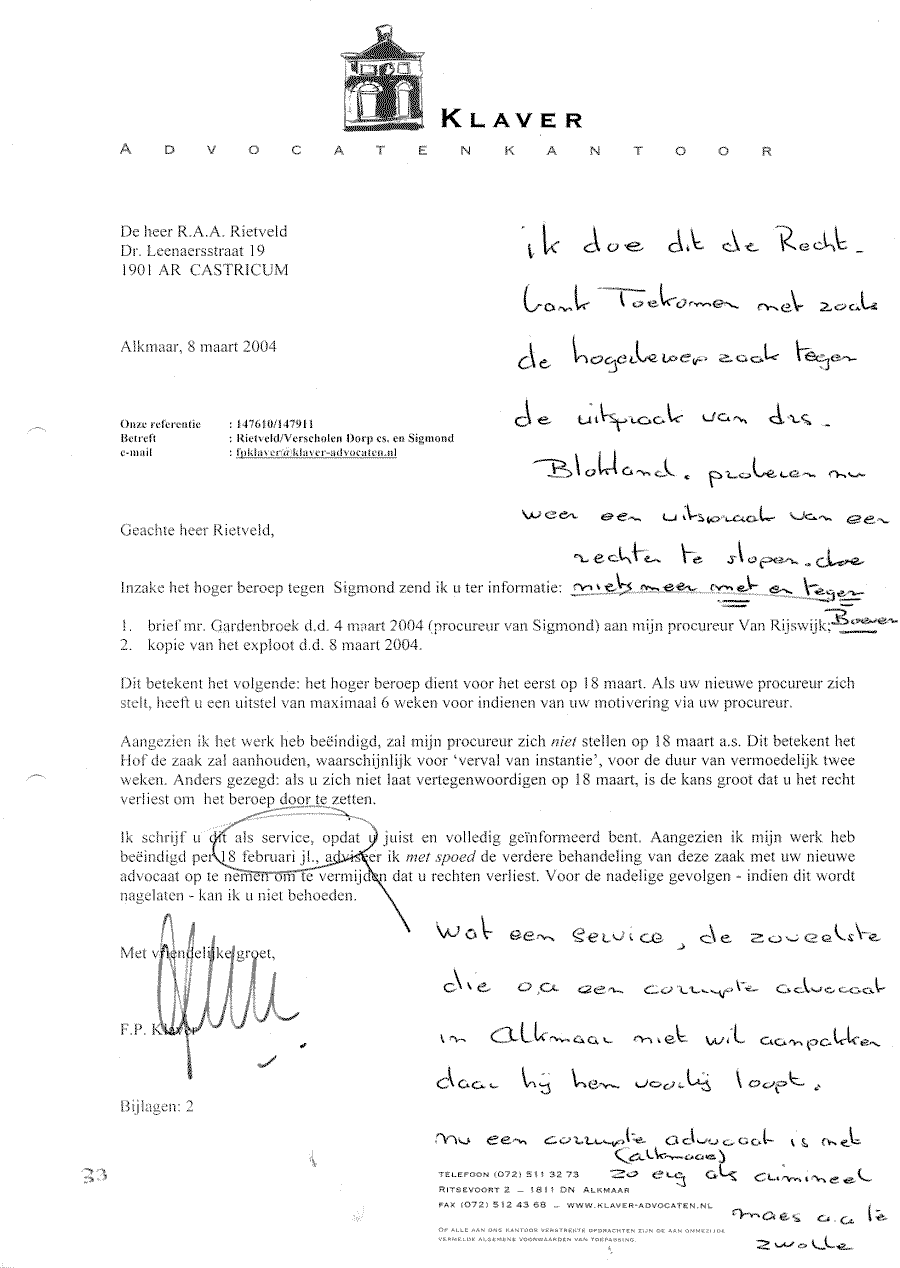 KLAVER
ADVOCATENKANTOOR
De heer R.A.A. Rietveld
Dr. Leenaersstraat 19
1901 AR CASTRICUM
Alkmaar, 8 maart 2004
ik doe dit de Recht-
bank Toekomen net zoals
de hogeberoep zaak tegen
de uitspraak van drs.
Blokland. proberen nu
weer een uitspraak van een
rechter te slopen. doe
niets meer met en tegen
Boeven
Onze referentie : 147610/147911
Betreft : Rietveld/Verscholen Dorp cs. en Sigmond
e-mail : fpklaver@klaver-advocaten.nl
Geachte heer Rietveld,
Inzake het hoger beroep tegen Sigmond zend ik u ter informatie:
1. brief mr. Gardenbroek d.d. 4 maart 2004 (procureur van Sigmond) aan mijn procureur Van Rijswijk;
2. kopie van het exploot d.d. 8 maart 2004.
Dit betekent het volgende: het hoger beroep dient voor het eerst op 18 maart. Als uw nieuwe procureur zich
stelt, heeft u een uitstel van maximaal 6 weken voor indienen van uw motivering via uw procureur.
Aangezien ik het werk heb beëindigd, zal mijn procureur zich niet stellen op 18 maart a.s. Dit betekent het
Hof de zaak zal aanhouden, waarschijnlijk voor ‘verval van instantie’, voor de duur van vermoedelijk twee
weken. Anders gezegd: als u zich niet laat vertegenwoordigen op 18 maart, is de kans groot dat u het recht
verliest om het beroep door te zetten.
Ik schrijf u dit als service, opdat u juist en volledig geïnformeerd bent. Aangezien ik mijn werk heb
beëindigd per 18 februari jl., adviseer ik met spoed de verdere behandeling van deze zaak met uw nieuwe
advocaat op te nemen om te vermijden dat u rechten verliest. Voor de nadelige gevolgen - indien dit wordt
nagelaten - kan ik u niet behoeden.
Met vriendelijke groet,
F.P. Klaver
Bijlagen: 2
wat een service, de zoveelste
die o.a een corrupte advocaat
in Alkmaar niet wil aanpakken
daar hij hem voorbij loopt.
nu een corrupte advocaat is net
(alkmaar)
zo erg als crimineel
maes a.a te
zwolle
33
TELEFOON (072) 511 32 73
RITSEVOORT 2 – 1811 DN ALKMAAR
FAX (072) 512 43 68 – WWW.KLAVER-ADVOCATEN.NL
OP ALLE AAN ONS KANTOOR VERSTREKTE OPDRACHTEN ZIJN DE AAN OMMEZIJDE
VERMELDE ALGEMENE VOORWAARDEN VAN TOEPASSING.